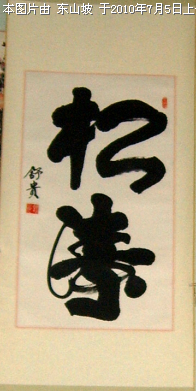 本图片由 东山坡 于2010年7月5日上
松寿
舒贵